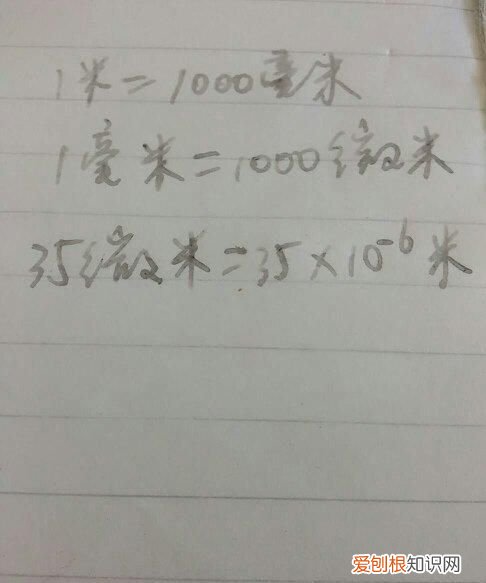 1米=1000毫米
1毫米=1000微米
35微米=35×10⁻⁶米
爱刨根知识网